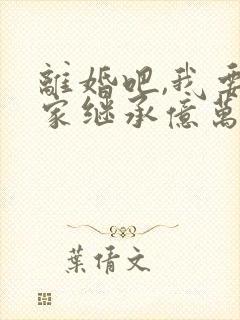 離婚吧,我要
家继承億萬
葉倩文